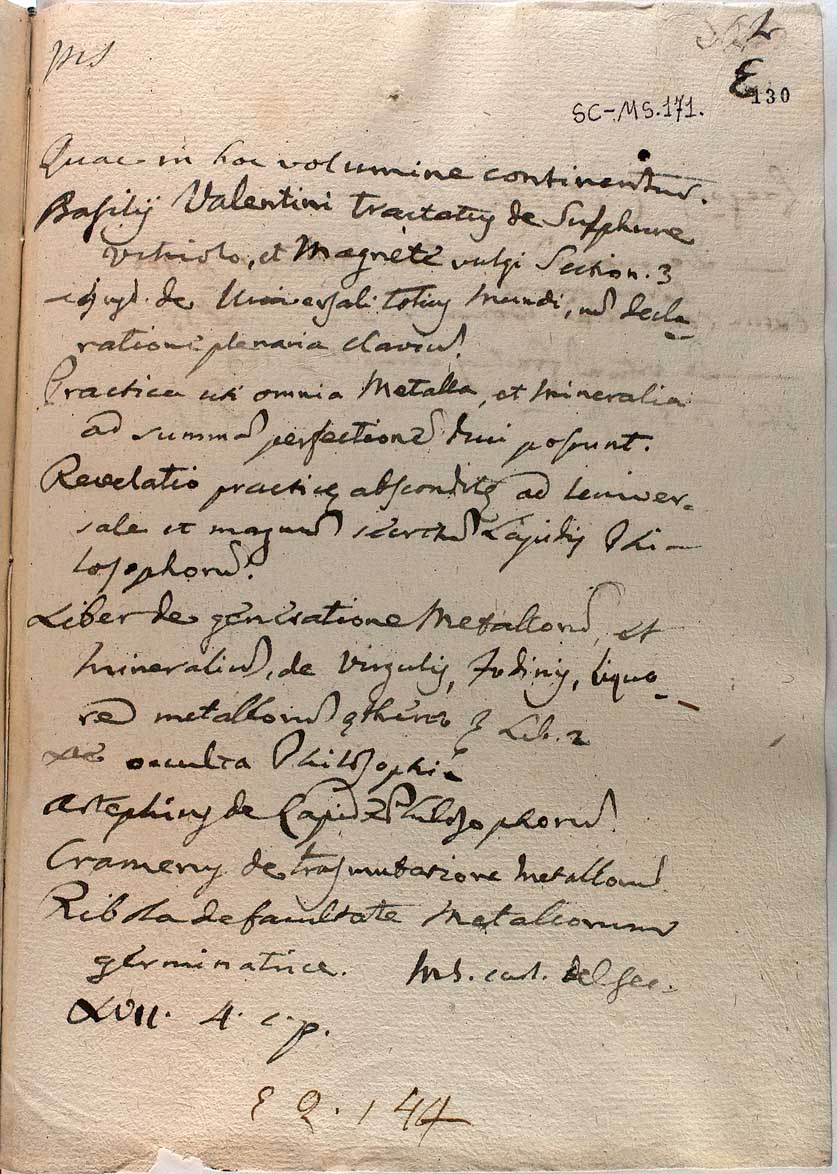 MS
E 130
SC-MS.171.
Quae in hoc volumine continentur.
Basilij Valentini tractatus de Sulphure
vitriolo, et Magnete vulgi Section. 3
de Universali totius Mundi, decla
ratione plenaria
Practica omnia Metalla, et Mineralia
ad summā perfectionē duci possunt.
Revelatio practicę absconditę ad univer-
sale et magnū secretū Lapidis Phi-
losophorū.
Liber de generatione Metallorū, et
Mineraliū, de Virgulis, Fodinis, liquo-
re metallorū Lib. 2
De occulta Philosophia
Artephius de Lapide Philosophorū.
Cramerus de trāsmutatione Metallorū.
Ribola de facultate Metallorum
germinatrice. MS. cart. del sec.
XVII. 4. c.p.
E 2. 144